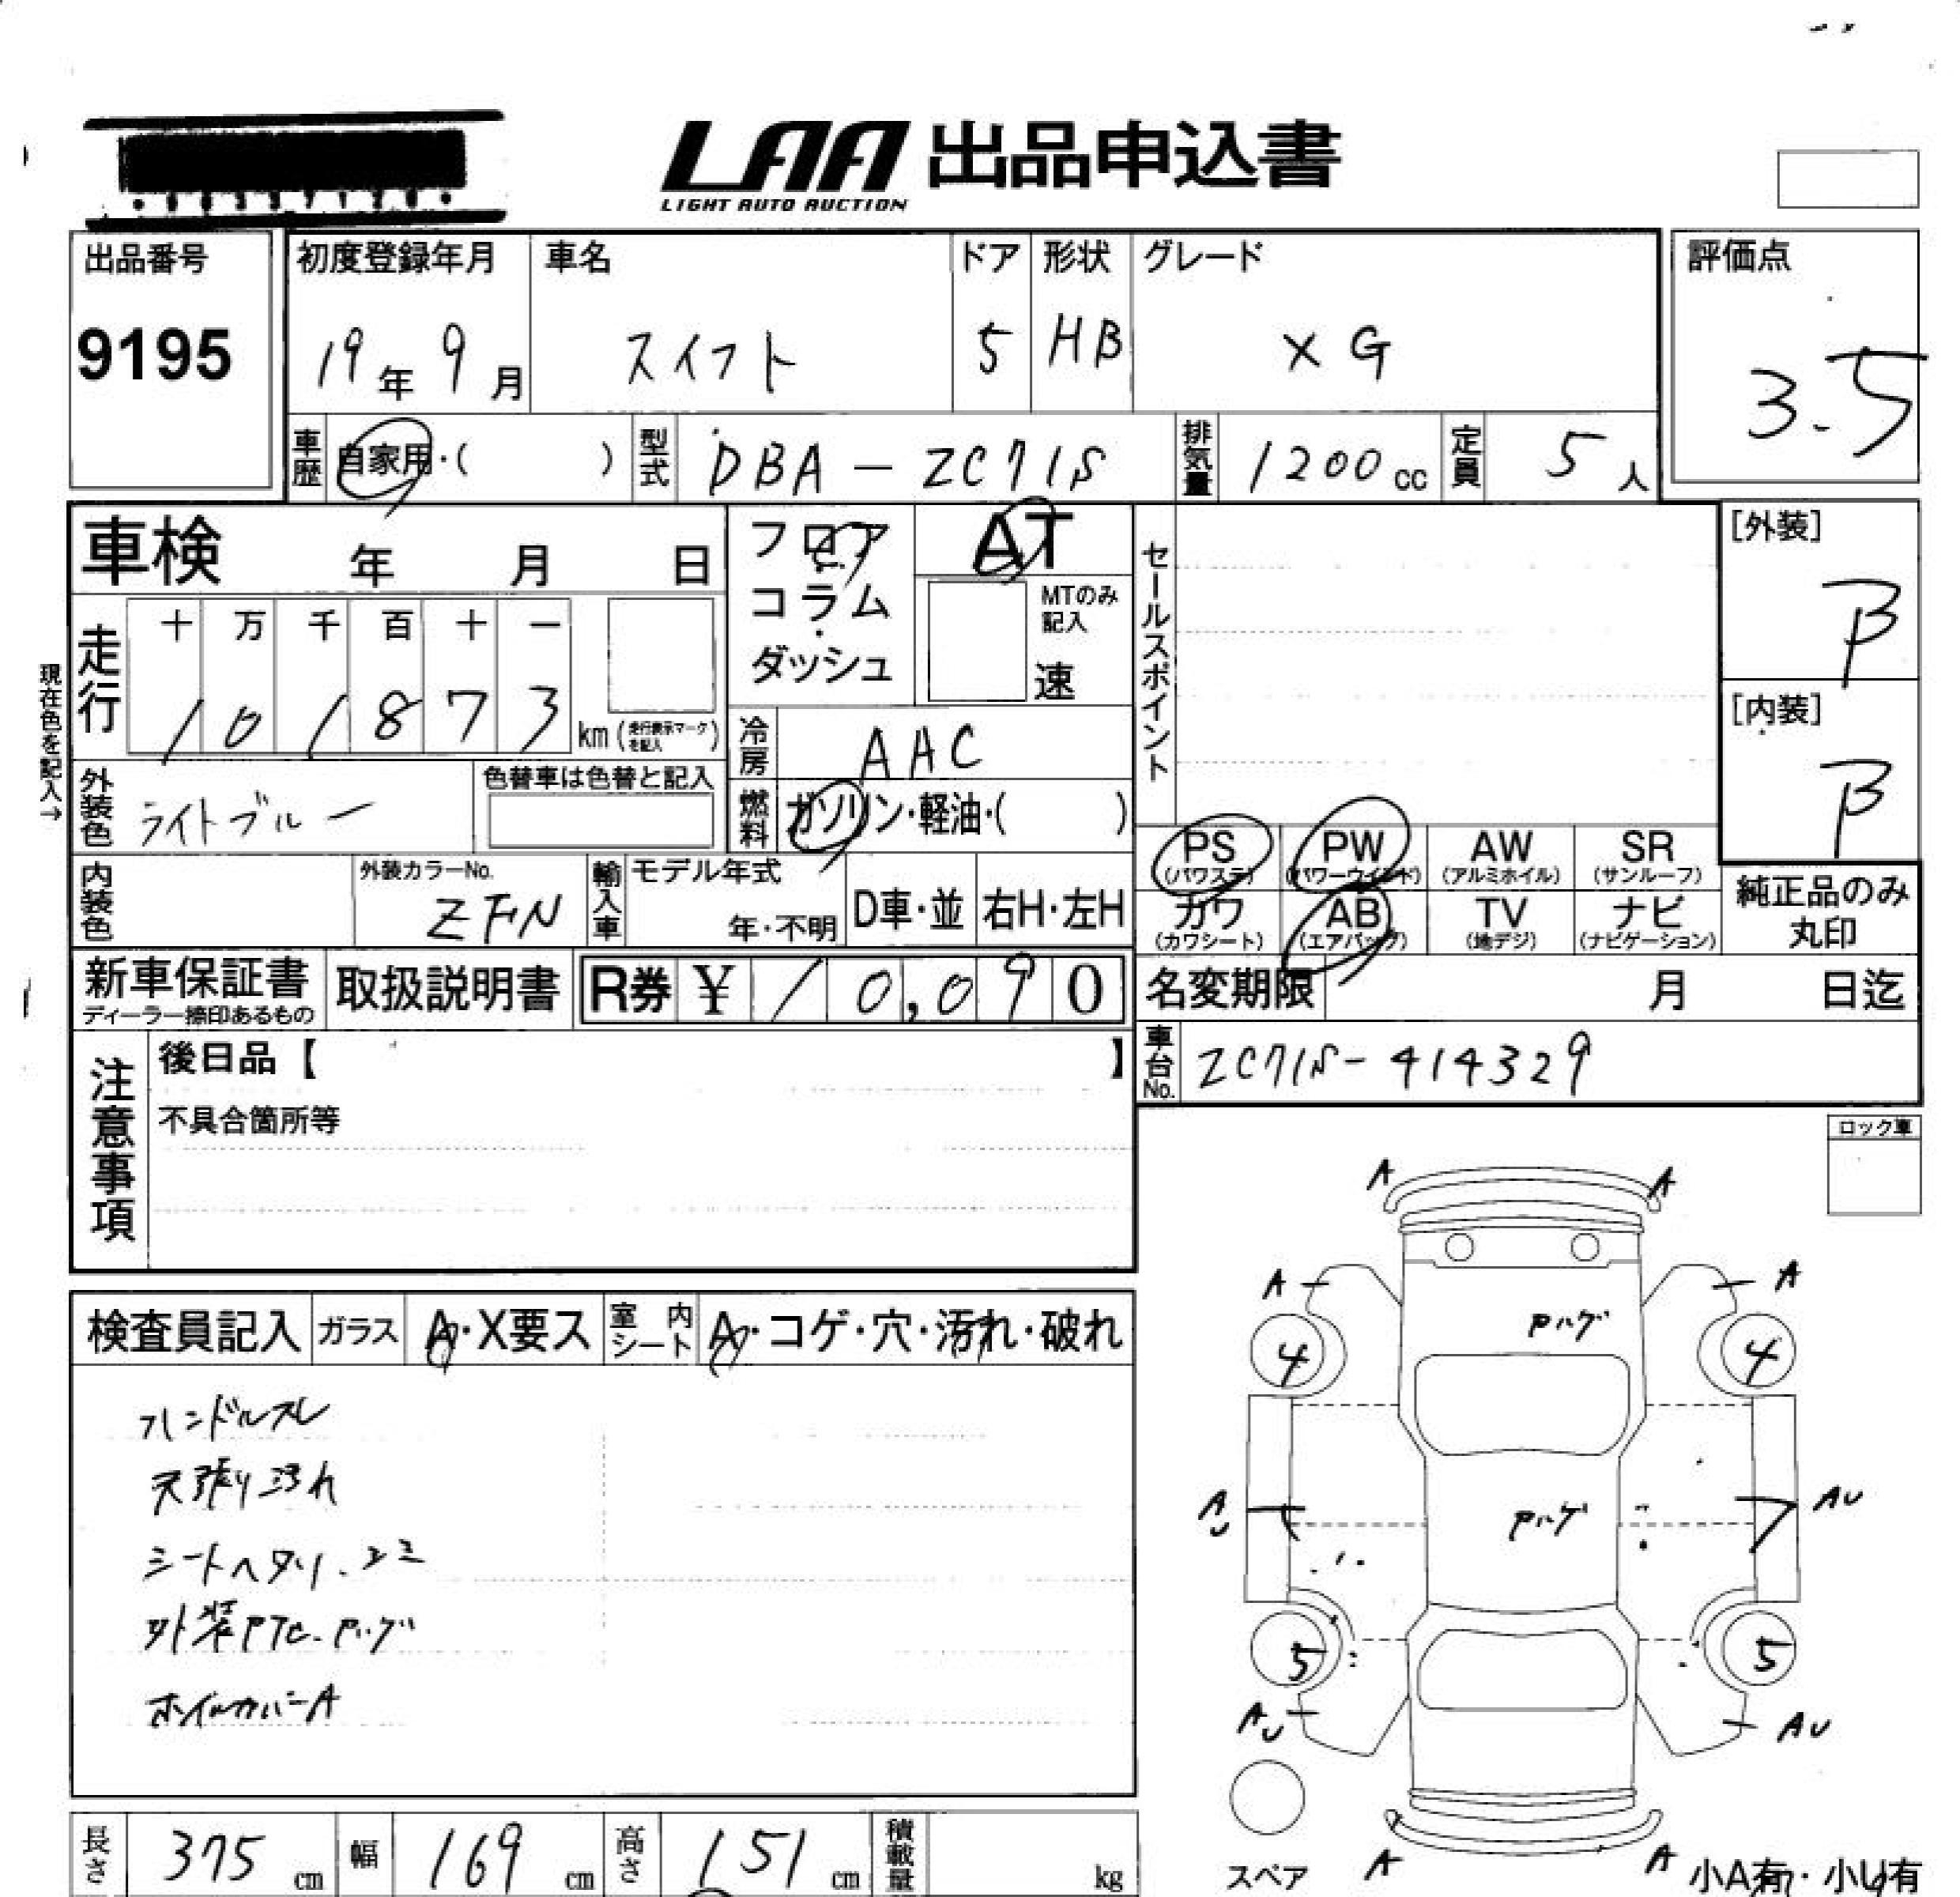 LAA 出品申込書
LIGHT AUTO AUCTION
出品番号
9195
初度登録年月 車名 ドア 形状 グレード
19年 9月 スイフト 5 HB XG
評価点
3.5
車歴 自家用・( ) 型式 DBA-ZC71S 排気量 1200cc 定員 5人
車検 年 月 日
フロア・コラム・ダッシュ
AT
MTのみ記入
速
セールスポイント
[外装]
β
[内装]
β
現在色を記入→
走行 十 万 千 百 十 一
101873 km (走行表示マークを記入)
冷房 AAC
外装色 ライトブルー 色替車は色替と記入
燃料 ガソリン・軽油・( )
内装色 外装カラーNo. ZFN
輸入車 モデル年式 年・不明 D車・並 右H・左H
PS (パワステ) PW (パワーウインド) AW (アルミホイル) SR (サンルーフ)
カワ (カワシート) AB (エアバッグ) TV (地デジ) ナビ (ナビゲーション)
純正品のみ丸印
新車保証書 ディーラー捺印あるもの 取扱説明書 R券 ¥10,090
名変期限 月 日迄
車台No. ZC71S-414329
注意事項
後日品【 】
不具合箇所等
ロック車
検査員記入 ガラス A・X要ス 室内シート A・コゲ・穴・汚れ・破れ
ハンドルスレ
天張り汚れ
シートヘタリ、シミ
外装PTC、Pハゲ
ホイルカバーA
A A
A A
Pハゲ
4 4
AU AU
Pハゲ
5 5
AU AU
A A
スペア
小A有・小U有
長さ 375 cm 幅 169 cm 高さ 151 cm 積載量 kg